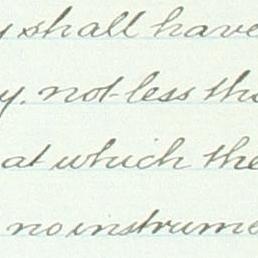 y shall have
y. not less tha
at which the
no instrume